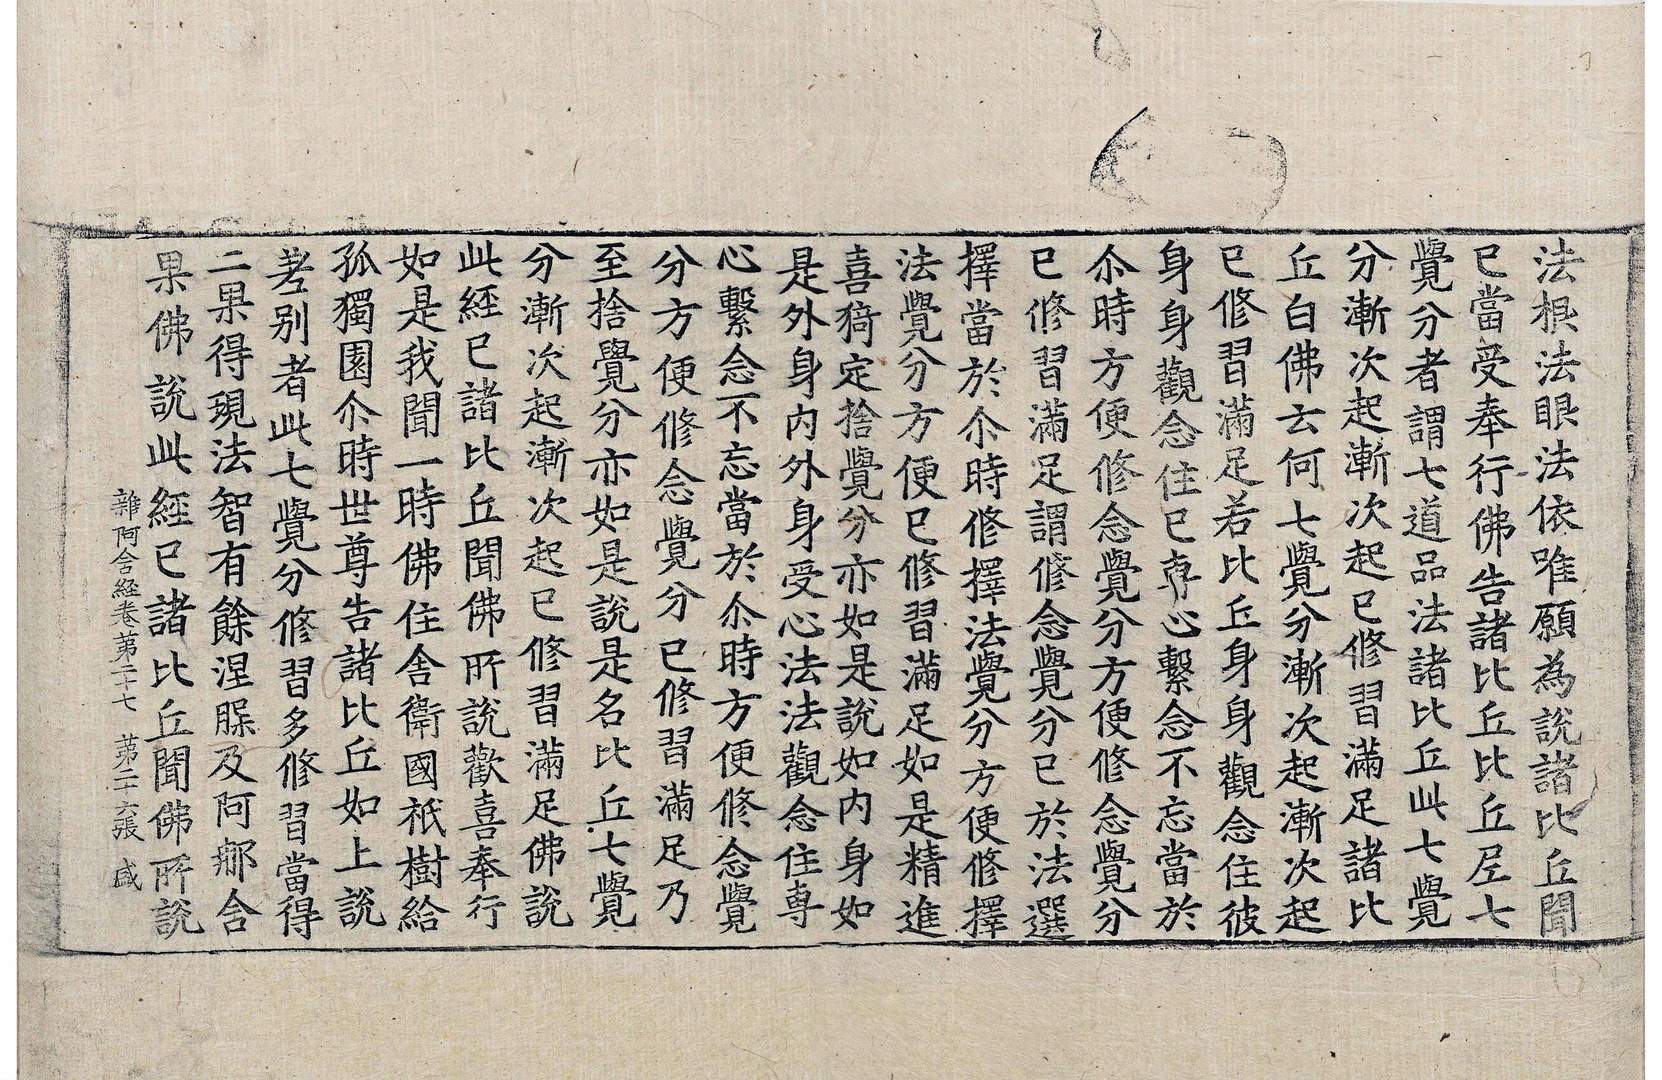 法根法眼法依唯願為說諸比丘聞
已當受奉行佛告諸比丘比丘尼七
覺分者謂七道品法諸比丘此七覺
分漸次起漸次起已修習滿足諸比
丘白佛云何七覺分漸次起漸次起
已修習滿足若比丘身身觀念住彼
身身觀念住已專心繫念不忘當於
尒時方便修念覺分方便修念覺分
已修習滿足謂修念覺分已於法選
擇當於尒時修擇法覺分方便修擇
法覺分方便已修習滿足如是精進
喜猗定捨覺分亦如是說如內身如
是外身內外身受心法法觀念住專
心繫念不忘當於尒時方便修念覺
分方便修念覺分已修習滿足乃
至捨覺分亦如是說是名比丘七覺
分漸次起漸次起已修習滿足佛說
此經已諸比丘聞佛所說歡喜奉行
如是我聞一時佛住舍衛國祇樹給
孤獨園尒時世尊告諸比丘如上說
差別者此七覺分修習多修習當得
二果得現法智有餘涅槃及阿那含
果佛說此經已諸比丘聞佛所說
雜阿含経卷第二十七　第二十六張　盛